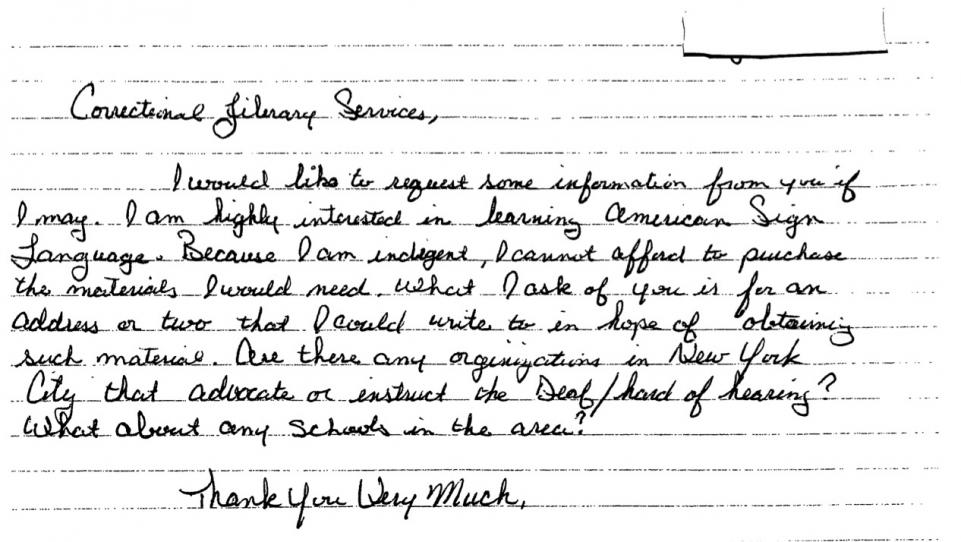 Correctional Library Services,
I would like to request some information from you if
I may. I am highly interested in learning American Sign
Language. Because I am indigent, I cannot afford to purchase
the materials I would need. What I ask of you is for an
address or two that I could write to in hope of obtaining
such material. Are there any orginizations in New York
City that advocate or instruct the Deaf/hard of hearing?
What about any schools in the area?
Thank You Very Much,